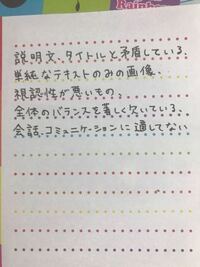 Rainbo
説明文、タイトルと矛盾している、
単純なテキストのみの画像、
視認性が悪いもの、
全体のバランスを著しく欠いている、
会話、コミュニケーションに適してない